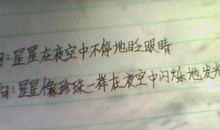 :星星在夜空中不停地眨眼睛
:星星像珍珠一样在夜空中闪烁地发光